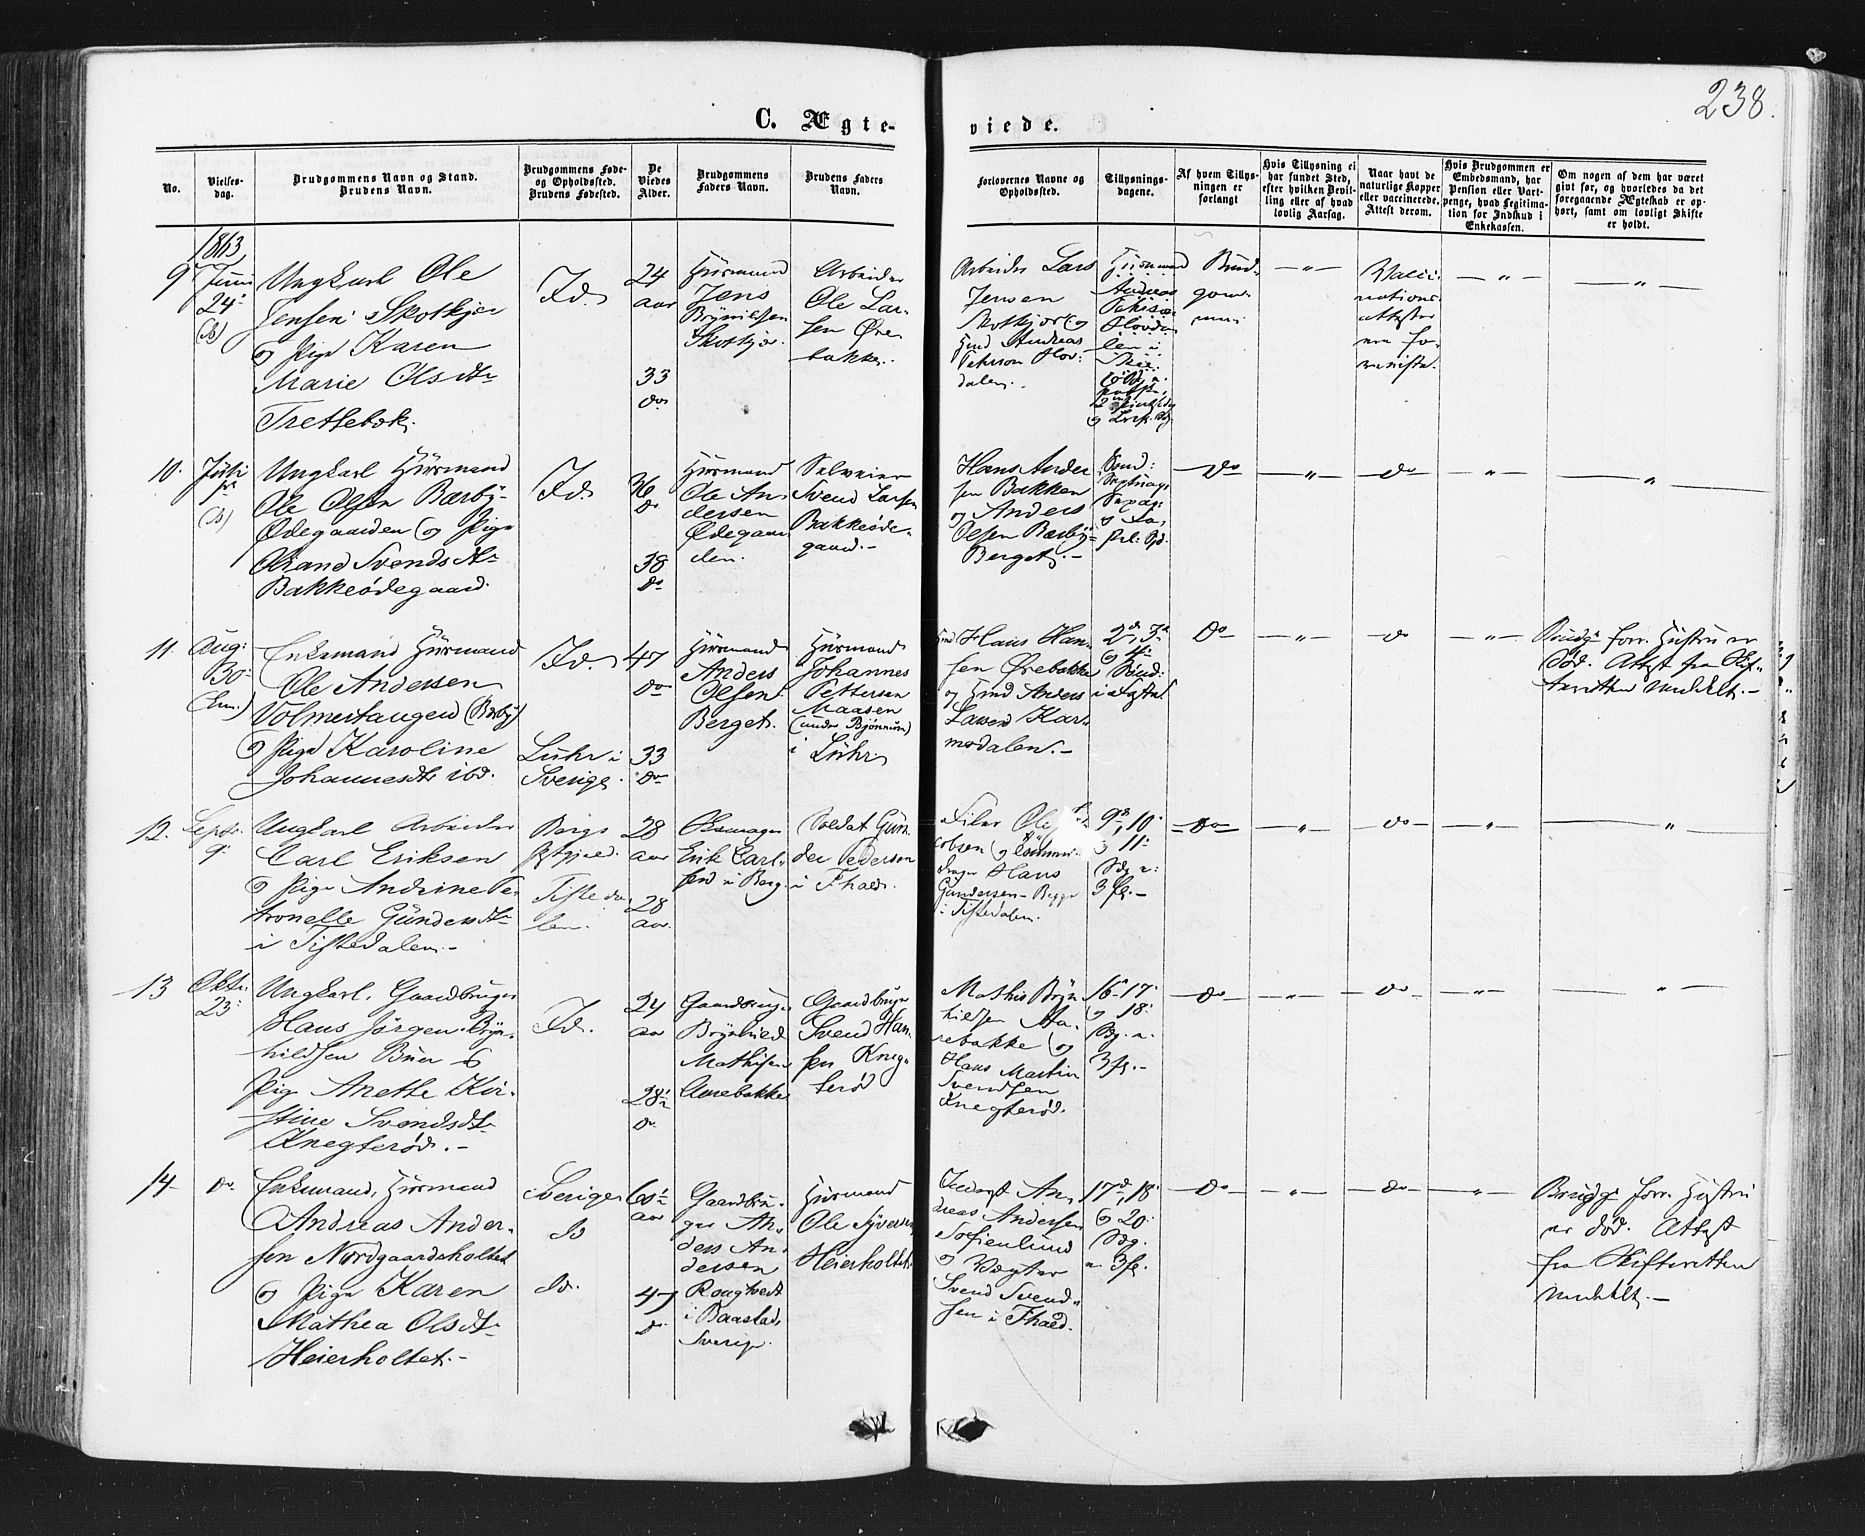 238.
C. Ægte-
viede.
No.
Vielses-
dag.
Brudgommens Navn og Stand.
Brudens Navn.
Brudgommens Føde-
og Opholdssted.
Brudens Fødested.
De
Viedes
Alder.
Brudgommens
Faders Navn.
Brudens Faders
Navn.
Forlovernes Navne og
Opholdssted.
Tillysnings-
dagene.
Af hvem Tillys-
ningen er
forlangt
Hvis Tillysning ei
har fundet Sted,
efter hvilken Bevil-
ling eller af hvad
lovlig Aarsag.
Naar havt de
naturlige Kopper
eller vaccinerede.
Attest derom.
Hvis Brudgommen er
Embedsmand, har
Pension eller Vart-
penge, hvad Legitima-
tion for Indskud i
Enkekassen.
Om nogen af dem har været
givt før, og hvorledes da det
foregaaende Ægteskab er op-
hørt, samt om lovligt Skifte
er holdt.
1863
9
Juni
24
(B)
Ungkarl Ole
Jensen Skotkjær
og Pige Karen
Marie Olsdtr
Trettebak.
Id.
24
aar
33
do
Huusmand
Jens
Brynildsen
Skotkjær
Arbeider
Ole Lar-
sen Øre-
bakke.
Arbeider Lars
Jensen
Skotkjær og
Andreas
Peterson Hov-
dalen.
Brud-
gom-
men
Vacci-
nations-
attester
10.
Ungkarl Huusmand
Ole Olsen Bærby-
Ødegaarden og Pige
Svendsdtr
Bakkeødegaard.
Id.
36
do
38
do
Huusmand
Ole An-
dersen
Ødegaar-
den.
Selveier
Svend Larsen
Bakkeøde-
gaard.-
Hans Ander
sen Bakken
og Anders
Olsen Bærby-
Berget.-
do
"
do
"
"
11
Aug:
30
Enkemand Huusmand
Ole Andersen
Volmertangen (Bærby)
og Pige Karoline
Johannesdtr ibd.
Id.
Luhr i
Sverige.
47
do
33
do
Huusmand
Anders
Olsen
Berget.
Huusmand
Johannes
Pettersen
Maasen
(under Bjørnerød)
i
Luhr
Hans Han-
sen Ørebakke
og Hmd Anders
Larsen Kar-
modalen.-
do
"
do
"
Brudg forr. Hustru er
død. Attest fra Skif-
teretten meddelt.-
12.
Septr.
9
Ungkarl Arbeider
Carl Eriksen
og Pige Andrine Pe-
tronelle Gundersdtr
i Tistedalen.-
Bergs
Tisteda-
len.
28
aar
28
aar.
Erik Carl-
sen i Berg.
Soldat Gun-
der Pedersen
i Fhald.
Hans
Gundersen
i Tistedalen.
do
"
do
"
"
13
Oktr.
23
Ungkarl, Gaardbruger
Hans Jørgen Bryn-
hildsen Buer og
Pige Anette Kir-
stine Svendsdtr
Knegterød.-
Id.
24
aar
28½
do
Gaardbruger
Brynhild
Mathisen
Aarebakke
Gaardbruger
Svend Han-
sen Kneg-
terød
Mathis Bryn
hildsen Aa-
rebakke og
Hans Martin
Svendsen
Knegterød.
16 17
og 18
do
"
do
"
"
14
do
Enkemand, Huusmand
Andreas Ander-
sen Nordgaardsholtet
og Pige Karen
Mathea Olsdtr
Heierholtet.-
Sverige
B
Id.
60½
aar
47
do
Gaardbru-
ger An-
ders An-
dersen
i Baastad
Sverige.
Huusmand
Ole Syversen
Heierholtet.
An-
dreas Andersen
Sofienlund
og Vægter
Svend Svend-
sen i Fhald.
17 18
og 20
do
"
do
"
Brudg: forr. Hustru
er død. Attest
fra Skifteretten
meddelt.-